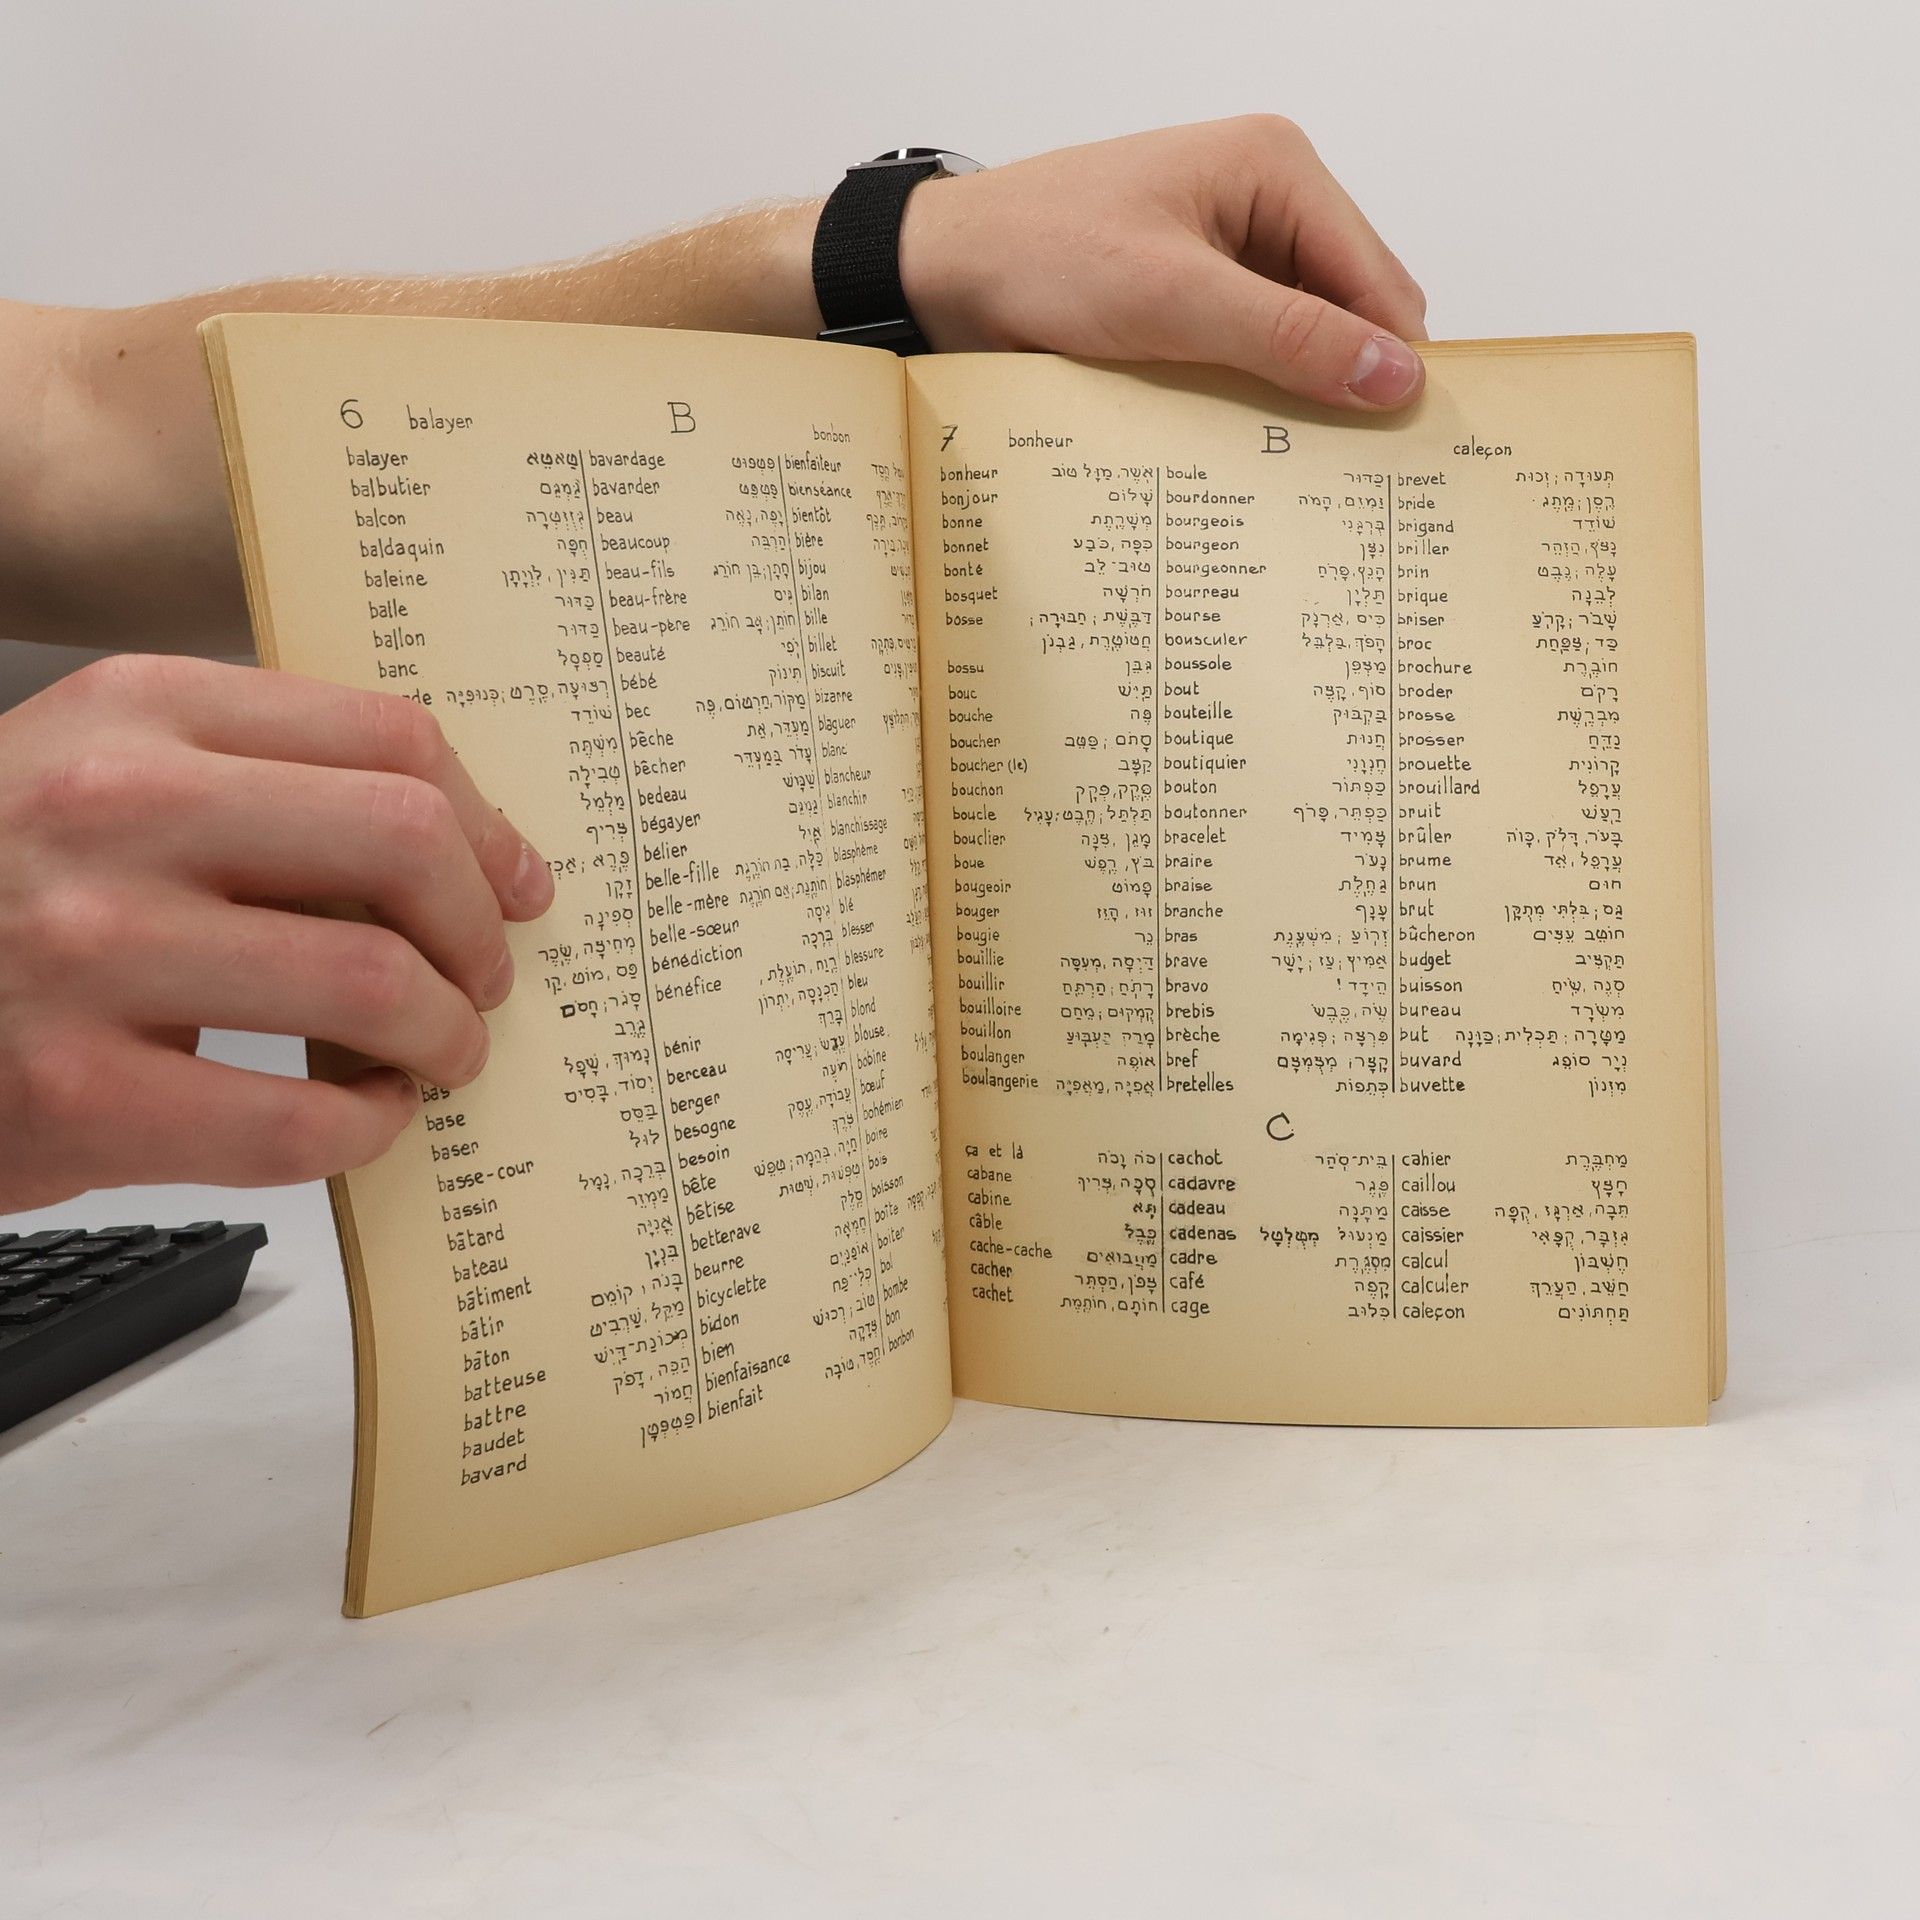 6 balayer B bonbon
balayer טַאטֵא
balbutier גַמְגֵם
balcon גְזֻזְטְרָה
baldaquin חֻפָּה
baleine תַּנִּין, לִוְיָתָן
balle כַּדּוּר
ballon כַּדּוּר
banc סַפְסָל
רְצוּעָה, סֶרֶט; כְּנוּפְיָה
שׁוֹדֵד
מִשְׁתֶּה
טְבִילָה
מַלְמֵל
צְרִיף
פֶּרֶא
זָקָן
סְפִינָה
מְחִיצָה, שֶׂכֶר
פַּס, מוֹט, קַו
סָגֹר; חָסֹם
גֶּרֶב
bas נָמוּךְ, שָׁפָל
base יְסוֹד, בָּסִיס
baser בַּסֵּס
basse-cour לוּל
bassin בְּרֵכָה, נָמָל
bâtard מַמְזֵר
bateau אֳנִיָּה
bâtiment בִּנְיָן
bâtir בָּנֹה, קוֹמֵם
bâton מַקֵּל, שַׁרְבִיט
batteuse מְכוֹנַת־דַּיִשׁ
battre הַכֵּה, דָּפֹק
baudet חֲמוֹר
bavard פַּטְפְּטָן
bavardage פִּטְפּוּט
bavarder פַּטְפֵּט
beau יָפֶה, נָאֶה
beaucoup הַרְבֵּה
beau-fils חָתָן; בֵּן חוֹרֵג
beau-frère גִּיס
beau-père חוֹתֵן; אָב חוֹרֵג
beauté יֹפִי
bébé תִּינוֹק
bec מַקּוֹר, חַרְטוֹם, פֶּה
bêche מַעְדֵּר, אֵת
bêcher עָדֹר בַּמַּעְדֵּר
bedeau שַׁמָּשׁ
bégayer גַמְגֵם
bélier אַיִל
belle-fille כַּלָּה, בַּת חוֹרֶגֶת
belle-mère חוֹתֶנֶת; אֵם חוֹרֶגֶת
belle-sœur גִּיסָה
bénédiction בְּרָכָה
bénéfice רֶוַח, תּוֹעֶלֶת,
הַכְנָסָה, יִתְרוֹן
bénir בָּרֵךְ
berceau עֶרֶשׂ; עֲרִיסָה
berger רֹעֶה
besogne עֲבוֹדָה, עֵסֶק
besoin צֹרֶךְ
bête חַיָּה, בְּהֵמָה; טִפֵּשׁ
bêtise טִפְּשׁוּת, שְׁטוּת
betterave סֶלֶק
beurre חֶמְאָה
bicyclette אוֹפַנַּיִם
bidon כְּלִי־פַּח
bien טוֹב; רְכוּשׁ
bienfaisance צְדָקָה
bienfait חֶסֶד, טוֹבָה
bienfaiteur
bienséance
bientôt
bière
bijou
bilan
bille
billet
biscuit
bizarre
blaguer
blanc
blancheur
blanchir
blanchissage
blasphème
blasphémer
blé
blesser
blessure
bleu
blond
blouse
bobine
bœuf
bohémien
boire
bois
boisson
boîte
boiter
bol
bombe
bon
bonbon
7 bonheur B caleçon
bonheur אֹשֶׁר, מַזָּל טוֹב
bonjour שָׁלוֹם
bonne מְשָׁרֶתֶת
bonnet כִּפָּה, כֹּבַע
bonté טוּב־לֵב
bosquet חֹרְשָׁה
bosse דַּבֶּשֶׁת; חַבּוּרָה;
חֲטוֹטֶרֶת, גַּבְנוֹן
bossu גִּבֵּן
bouc תַּיִשׁ
bouche פֶּה
boucher סָתֹם; פַּטֵּם
boucher (le) קַצָּב
bouchon פְּקָק, פְּקָק
boucle תַּלְתַּל; חֶבֶט; עָגִיל
bouclier מָגֵן, צִנָּה
boue בֹּץ, רֶפֶשׁ
bougeoir פָּמוֹט
bouger זוּז, הָזֵז
bougie נֵר
bouillie דַּיְסָה, מְעִסָּה
bouillir רָתֹחַ; הַרְתֵּחַ
bouilloire קֻמְקוּם; מֵחַם
bouillon מָרָק בַּעְבּוּעַ
boulanger אוֹפֶה
boulangerie אֲפִיָּה, מַאֲפִיָּה
boule כַּדּוּר
bourdonner זַמְזֵם, הָמֹה
bourgeois בֻּרְגָּנִי
bourgeon נִצָּן
bourgeonner הָנֵץ, פָּרֹחַ
bourreau תַּלְיָן
bourse כִּיס, אַרְנָק
bousculer הָפֹךְ, בַּלְבֵּל
boussole מַצְפֵּן
bout סוֹף, קָצֶה
bouteille בַּקְבּוּק
boutique חֲנוּת
boutiquier חֶנְוָנִי
bouton כַּפְתּוֹר
boutonner כַּפְתֵּר, פָּרֹף
bracelet צָמִיד
braire נָעֹר
braise גַּחֶלֶת
branche עָנָף
bras זְרוֹעַ; מִשְׁעֶנֶת
brave אַמִּיץ; עַז; יָשָׁר
bravo הֵידָד!
brebis שֶׂה, כֶּבֶשׂ
brèche פִּרְצָה; פְּגִימָה
bref קָצָר; מְצֻמְצָם
bretelles כְּתֵפוֹת
brevet תְּעוּדָה; זְכוּת
bride רֶסֶן; מֶתֶג
brigand שׁוֹדֵד
briller נָצֹץ, הַזְהֵר
brin עָלֶה; נֶבֶט
brique לְבֵנָה
briser שָׁבֹר; קָרֹעַ
broc כַּד; צַפַּחַת
brochure חוֹבֶרֶת
broder רָקֹם
brosse מִבְרֶשֶׁת
brosser
brouette קְרוֹנִית
brouillard עֲרָפֶל
bruit רַעַשׁ
brûler בָּעֹר, דָּלֹק, כָּוֹה
brume עֲרָפֶל, אֵד
brun חוּם
brut גַּס; בִּלְתִּי מְתֻקָּן
bûcheron חוֹטֵב עֵצִים
budget תַּקְצִיב
buisson סְנֶה, שִׂיחַ
bureau מִשְׂרָד
but מַטָּרָה; תַּכְלִית; כַּוָּנָה
buvard נְיָר סוֹפֵג
buvette מִזְנוֹן
C
ça et là כֹּה וָכֹה
cabane סֻכָּה, צְרִיף
cabine תָּא
câble כֶּבֶל
cache-cache מַחֲבוֹאִים
cacher צָפֹן, הַסְתֵּר
cachet חוֹתָם, חוֹתֶמֶת
cachot בֵּית־סֹהַר
cadavre פֶּגֶר
cadeau מַתָּנָה
cadenas מַנְעוּל מְטֻלְטָל
cadre מִסְגֶּרֶת
café קָפֶה
cage כְּלוּב
cahier מַחְבֶּרֶת
caillou חָצָץ
caisse תֵּבָה, אַרְגָּז, קֻפָּה
caissier גִּזְבָּר, קֻפַּאי
calcul חֶשְׁבּוֹן
calculer חַשֵּׁב, הַעֲרֵךְ
caleçon תַּחְתּוֹנִים